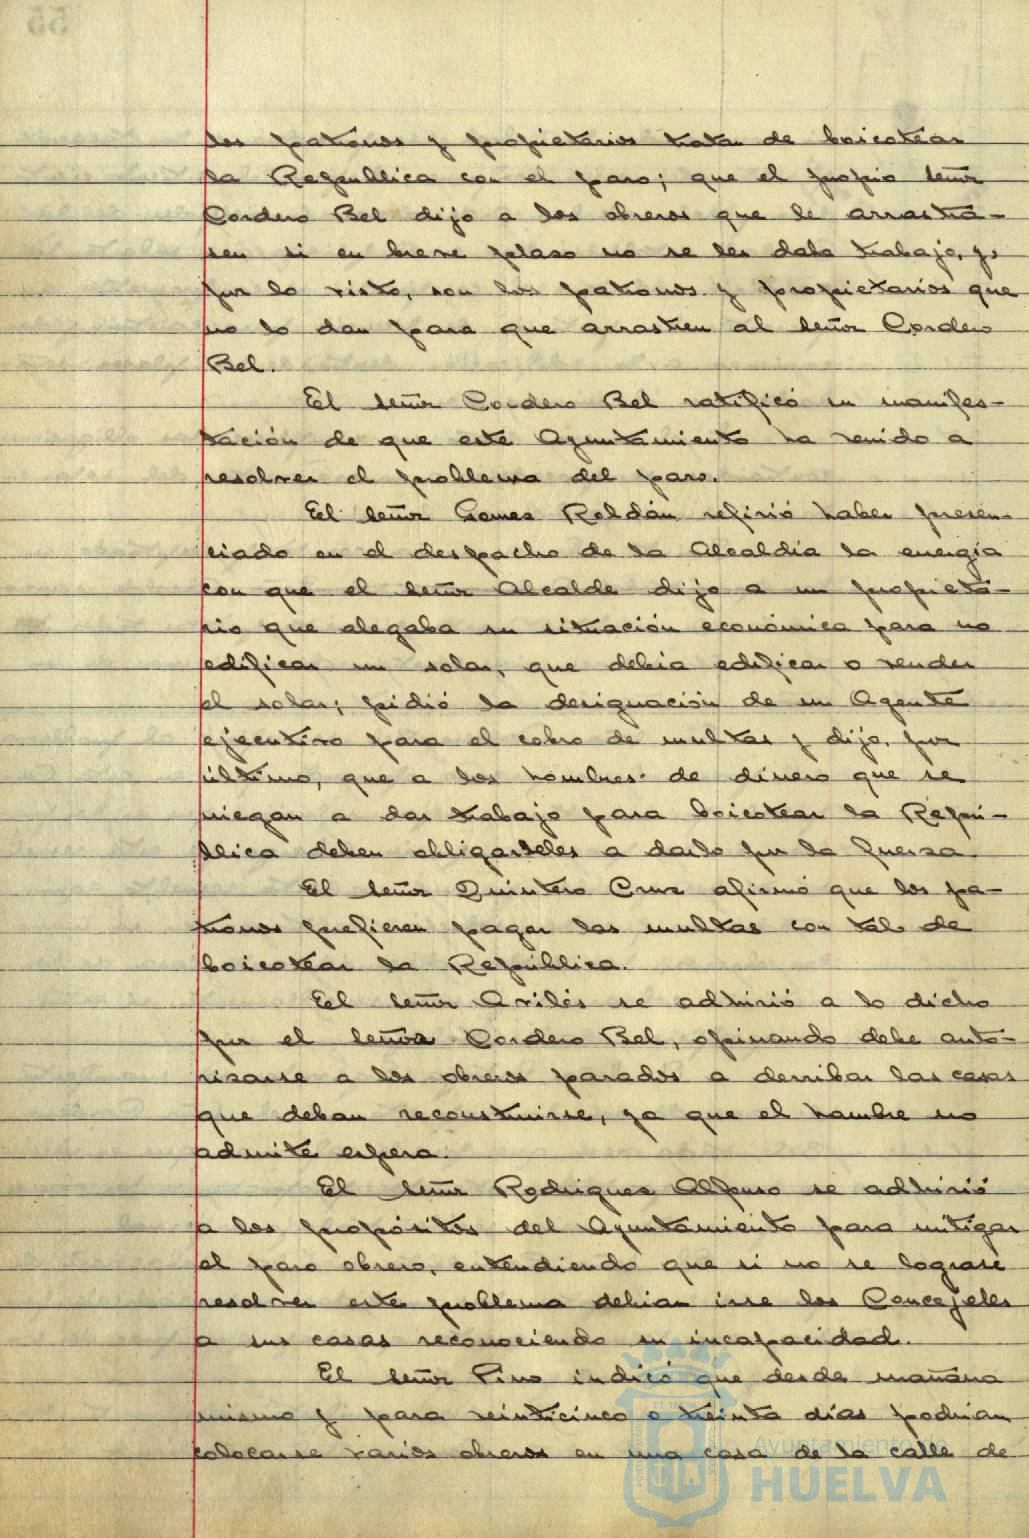 los patronos y propietarios tratan de boicotear
la República con el paro; que el propio señor
Cordero Bel dijo a los obreros que le arrastra-
sen si en breve plazo no se les daba trabajo, y,
por lo visto, son los patronos y propietarios que
no lo dan para que arrastren al señor Cordero
Bel.
El señor Cordero Bel ratificó su manifes-
tación de que este Ayuntamiento ha venido a
resolver el problema del paro.
El señor Gomez Roldán refirió haber presen-
ciado en el despacho de la Alcaldía la energía
con que el señor Alcalde dijo a un propieta-
rio que alegaba su situación económica para no
edificar un solar, que debia edificar o vender
el solar; pidió la designación de un Agente
ejecutivo para el cobro de multas y dijo, por
último, que a los hombres de dinero que se
niegan a dar trabajo para boicotear la Repú-
blica deben obligarseles a darlo por la fuerza.
El señor Quintero Cruz afirmó que los pa-
tronos prefieren pagar las multas con tal de
boicotear la República.
El señor Avilés se adhirió a lo dicho
por el señor Cordero Bel, opinando debe auto-
rizarse a los obreros parados a derribar las casas
que deban reconstruirse, ya que el hambre no
admite espera.
El señor Rodriguez Alfonso se adhirió
a los propósitos del Ayuntamiento para mitigar
el paro obrero, entendiendo que si no se lograse
resolver este problema debian irse los Concejales
a sus casas reconociendo su incapacidad.
El señor Pino indicó que desde mañana
mismo y para veinticinco o treinta días podrian
colocarse varios obreros en una casa de la calle de
Ayuntamiento de
HUELVA
55